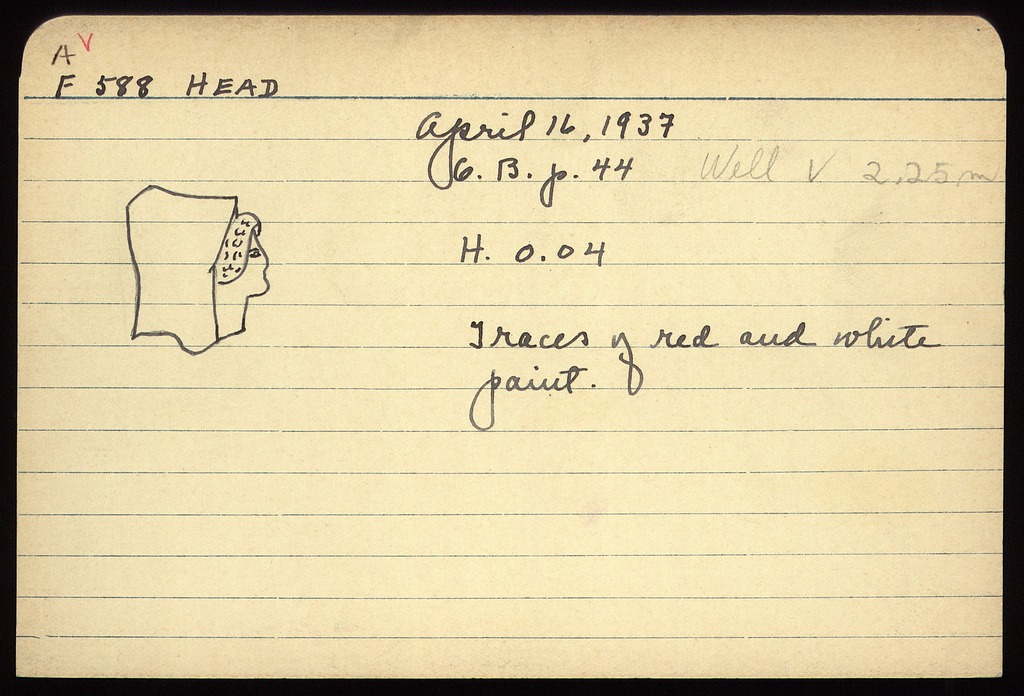 A V
F 588 HEAD
April 16, 1937
G. B. p. 44 Well V 2.25 m
H. 0.04
Traces of red and white
paint.